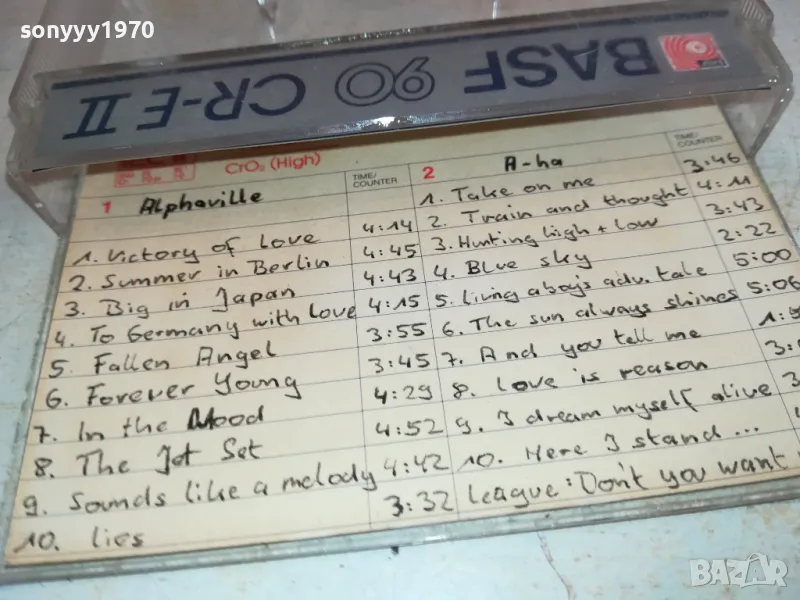 sonyyy1970
BASF 90 CR-E II
CrO₂ (High)
1 Alphaville
TIME/
COUNTER
1. Victory of Love 4:14
2. Summer in Berlin 4:45
3. Big in Japan 4:43
4. To Germany with Love 4:15
5. Fallen Angel 3:55
6. Forever Young 3:45
7. In the Mood 4:29
8. The Jet Set 4:52
9. Sounds like a melody 4:42
10. Lies 3:32
2 A-ha
TIME/
COUNTER
1. Take on me 3:46
2. Train and thought 4:11
3. Hunting high + low 3:43
4. Blue sky 2:22
5. Living a boy's adv. tale 5:00
6. The sun always shines 5:06
7. And you tell me
8. Love is reason
9. I dream myself alive
10. Here I stand...
League: Don't you want
BAZAR